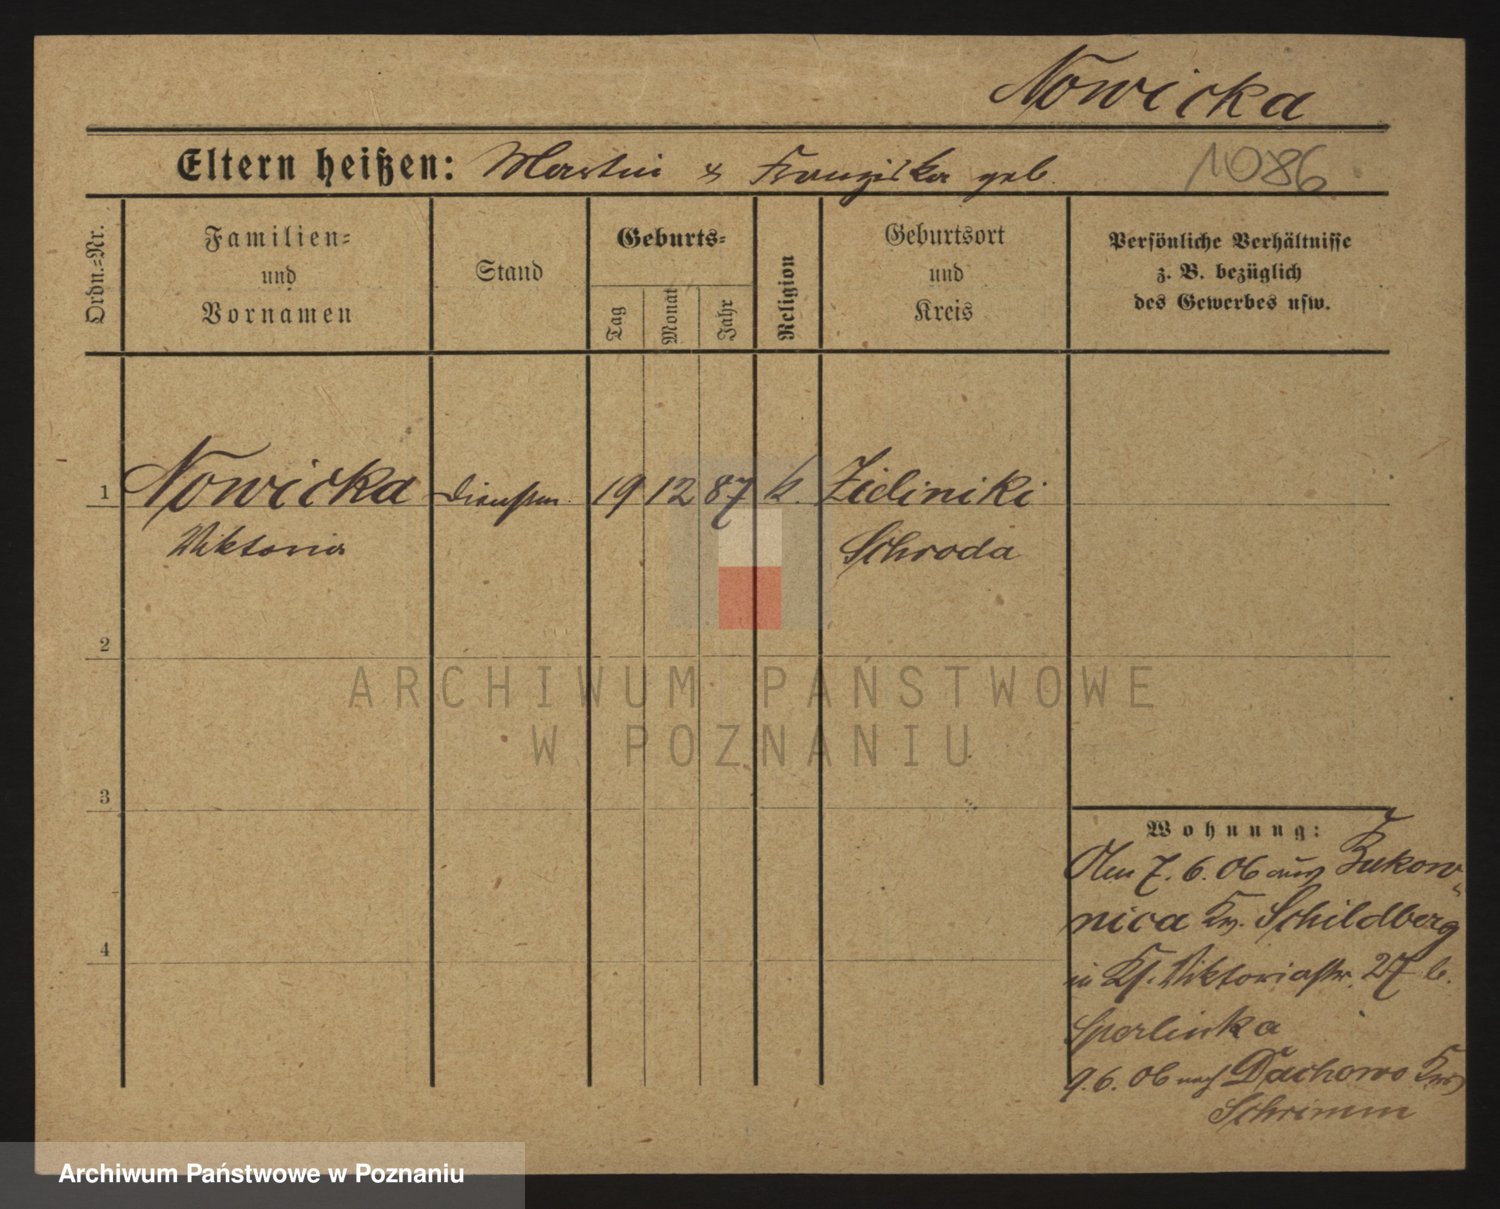 Nowicka
Eltern heißen: Martin & Franziska geb.
1086
Ordn.-Nr.
Familien-
und
Vornamen
Stand
Geburts-
Tag
Monat
Jahr
Religion
Geburtsort
und
Kreis
Persönliche Verhältnisse
z. B. bezüglich
des Gewerbes usw.
1 Nowicka Dienstm. 19 12 87 k. Zieliniki
Viktoria Schroda
2
3
4
ARCHIWUM PAŃSTWOWE
W POZNANIU
Wohnung:
Am 7.6.06 aus Bukow-
nica Kr. Schildberg
in Kl. Viktoriastr. 27 b.
Sperlinka
9.6.06 nach Dachowo Krs
Schrimm
Archiwum Państwowe w Poznaniu